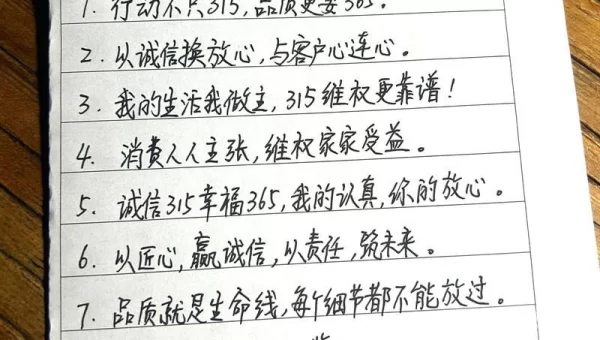 1. 行动不只315,品质更要365。
2. 以诚信换放心,与客户心连心。
3. 我的生活我做主,315维权更靠谱!
4. 消费人人主张,维权家家受益。
5. 诚信315幸福365,我的认真,你的放心。
6. 以匠心,赢诚信,以责任,筑未来。
7. 品质就是生命线,每个细节都不能放过。